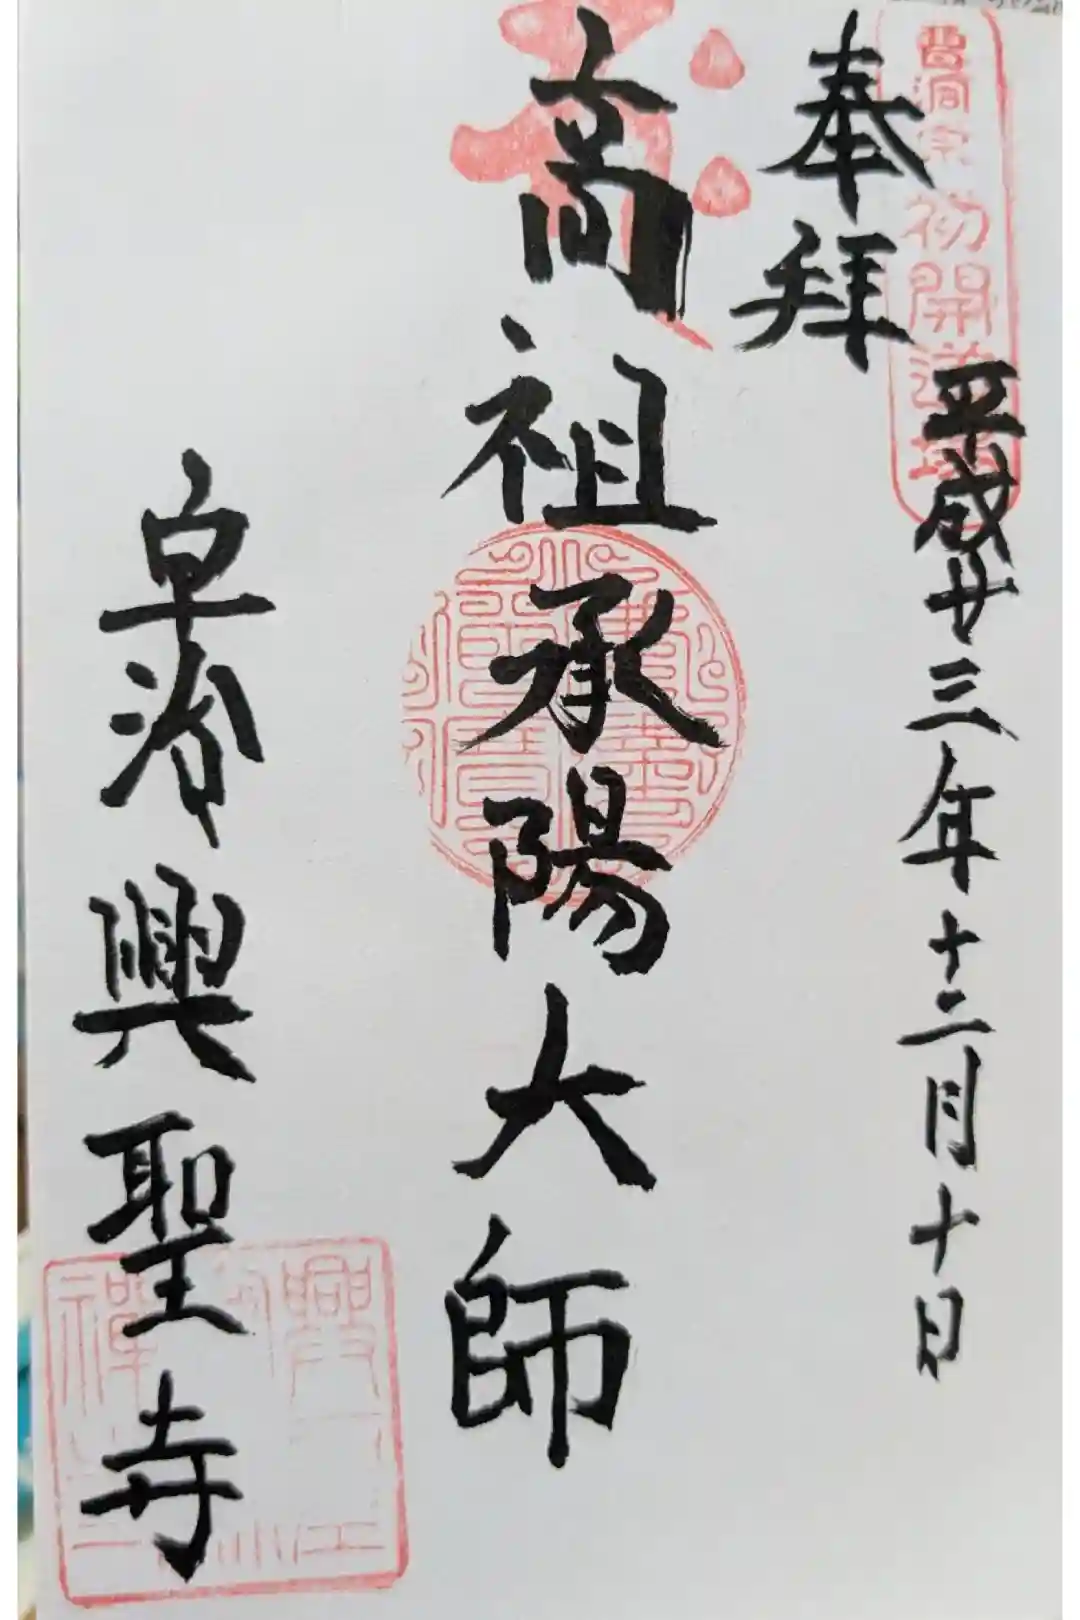 曹洞宗初開道場
奉拝
平成廿三年十二月十日
高祖承陽大師
宇治興聖寺